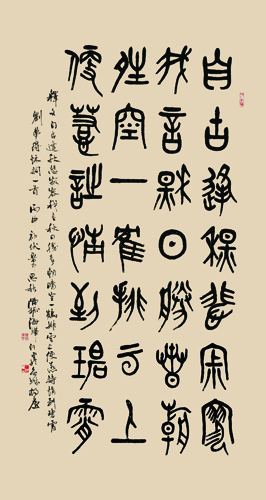 自古逢秋悲寂寥
我言秋日勝春朝
晴空一隺排云上
便引詩情到碧霄
釋文自古逢秋悲寂寥我言秋日勝春朝晴空一鶴排雲上便引詩情到碧霄
劉禹錫秋詞一首 丙申初伏